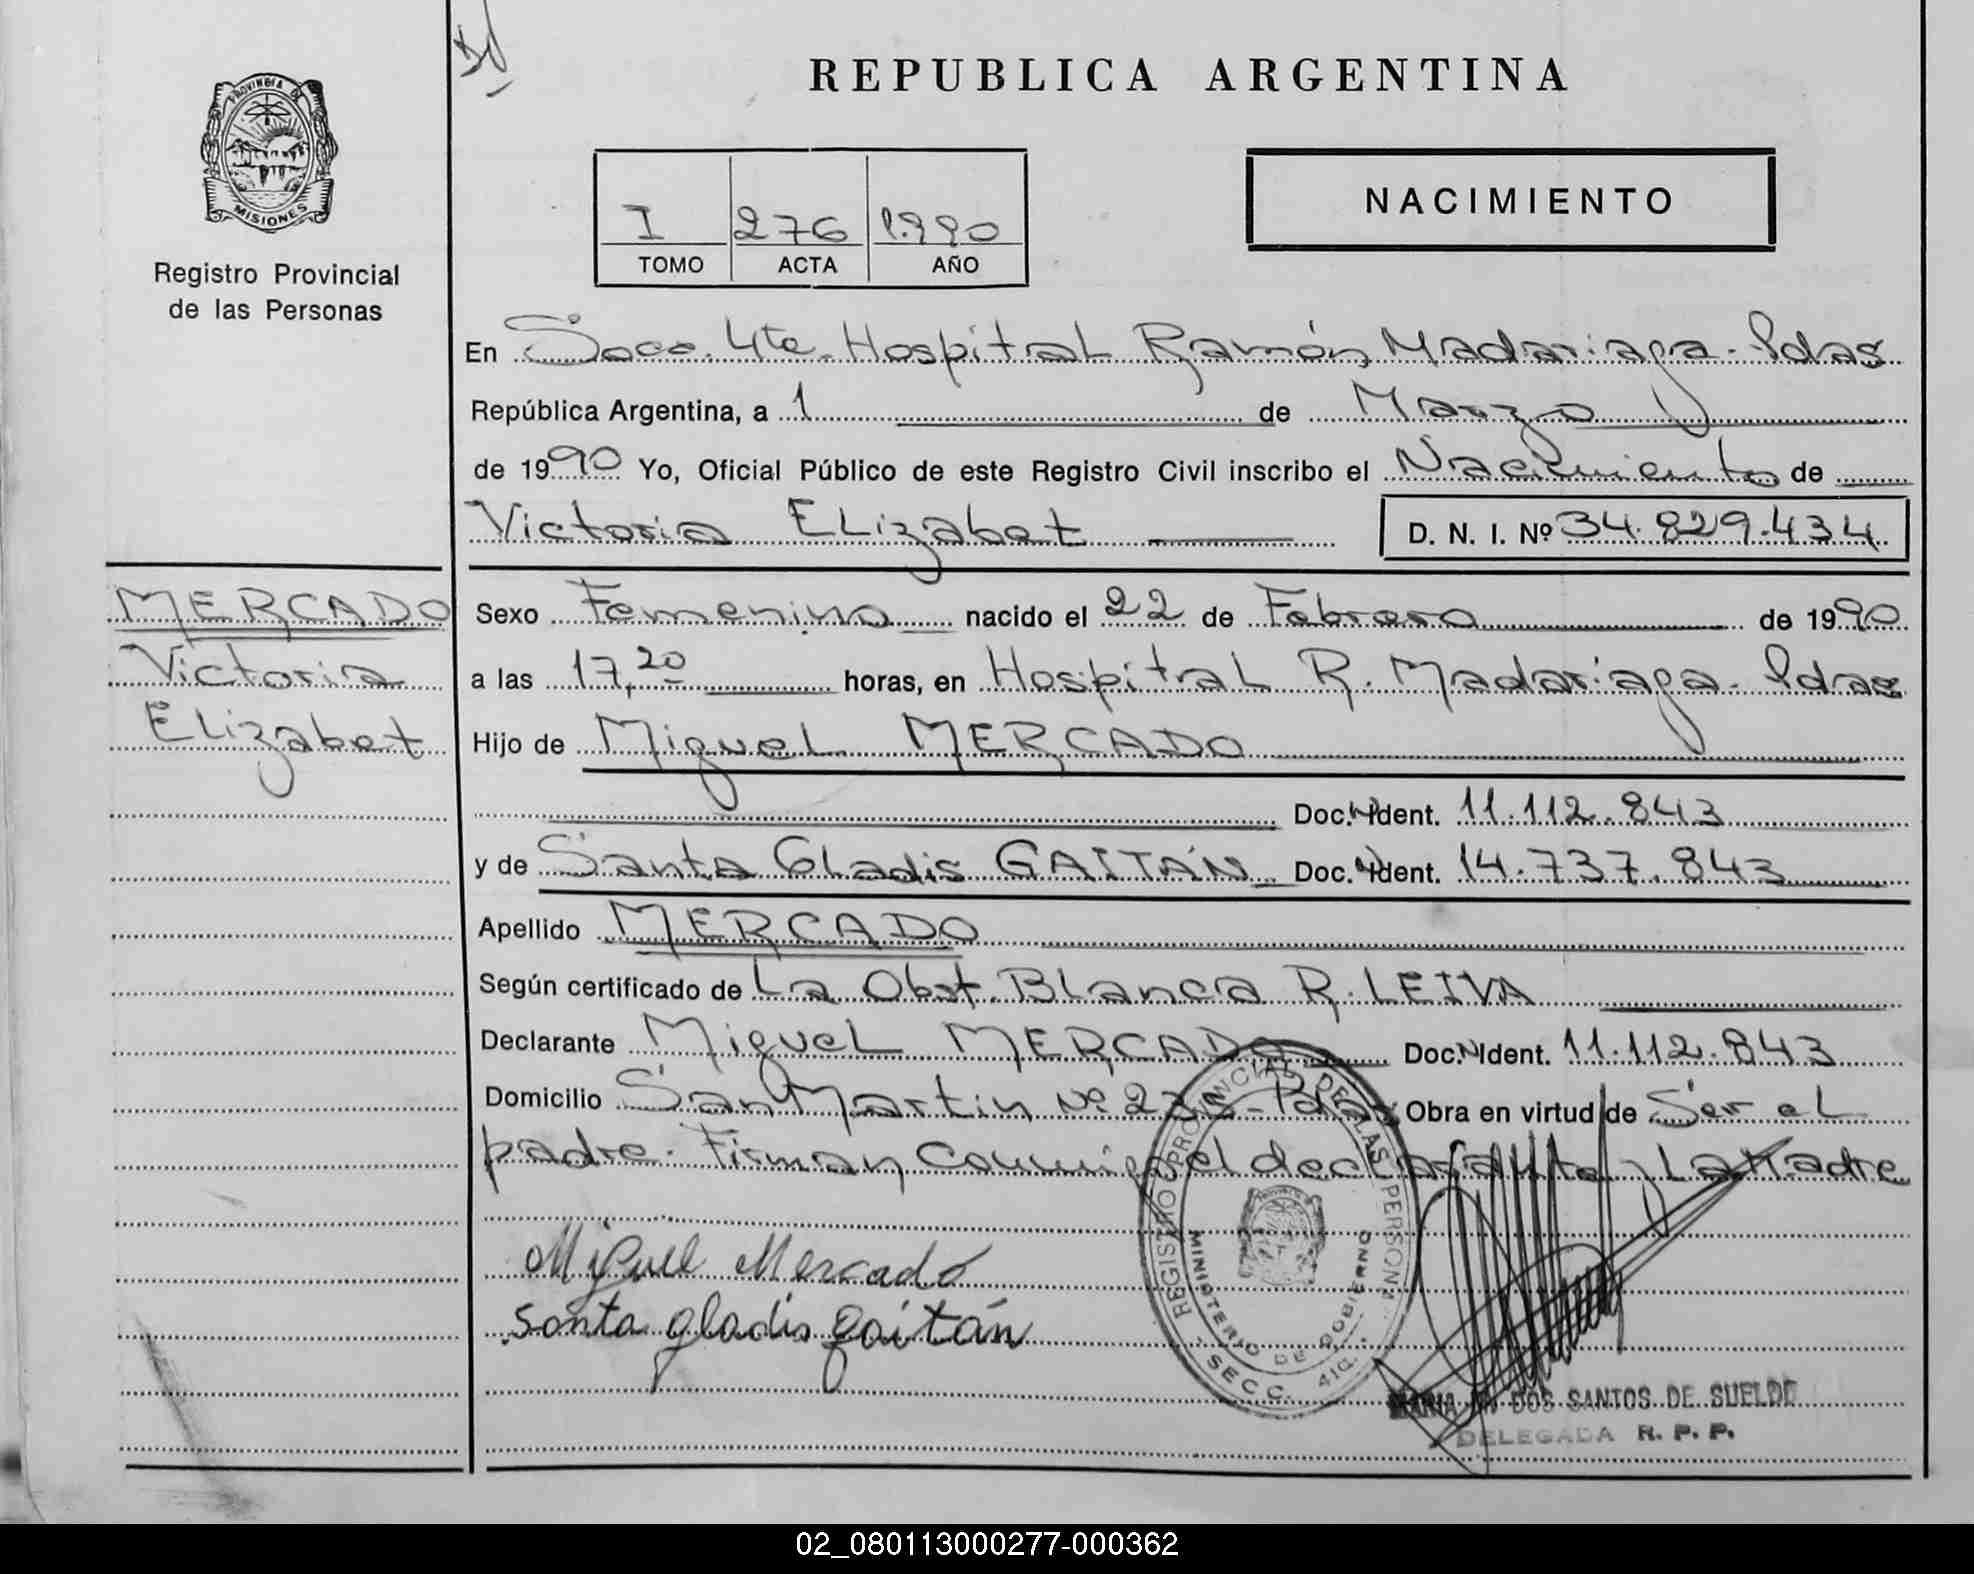 REPUBLICA ARGENTINA
PROVINCIA DE
MISIONES
Registro Provincial
de las Personas
I 276 1.990
TOMO ACTA AÑO
NACIMIENTO
En Secc. 4te. Hospital Ramón Madariaga - Pdas
República Argentina, a 1 de Marzo
de 1990 Yo, Oficial Público de este Registro Civil inscribo el Nacimiento de
Victoria ELizabet D. N. I. Nº 34.829.434
MERCADO
Victoria
ELizabet
Sexo Femenino nacido el 22 de Febrero de 1990
a las 17,20 horas, en HospitaL R. Madariaga - Pdas
Hijo de MigueL MERCADO
Doc. Ident. 11.112.843
y de Santa GLadis GAITÁN Doc. Ident. 14.737.843
Apellido MERCADO
Según certificado de La Obst. BLanca R. LEIVA
Declarante MigueL MERCADO Doc. Ident. 11.112.843
Domicilio San Martin Nº - Pdas Obra en virtud de Ser eL
padre. Firman conmigo el declarante y La Madre
Miguel Mercado
Santa gladis gaitán
REGISTRO PROVINCIAL DE LAS PERSONAS
MINISTERIO DE GOBIERNO
SECC. 4ta.
MARIA DOS SANTOS DE SUELDO
DELEGADA R. P. P.
02_080113000277-000362